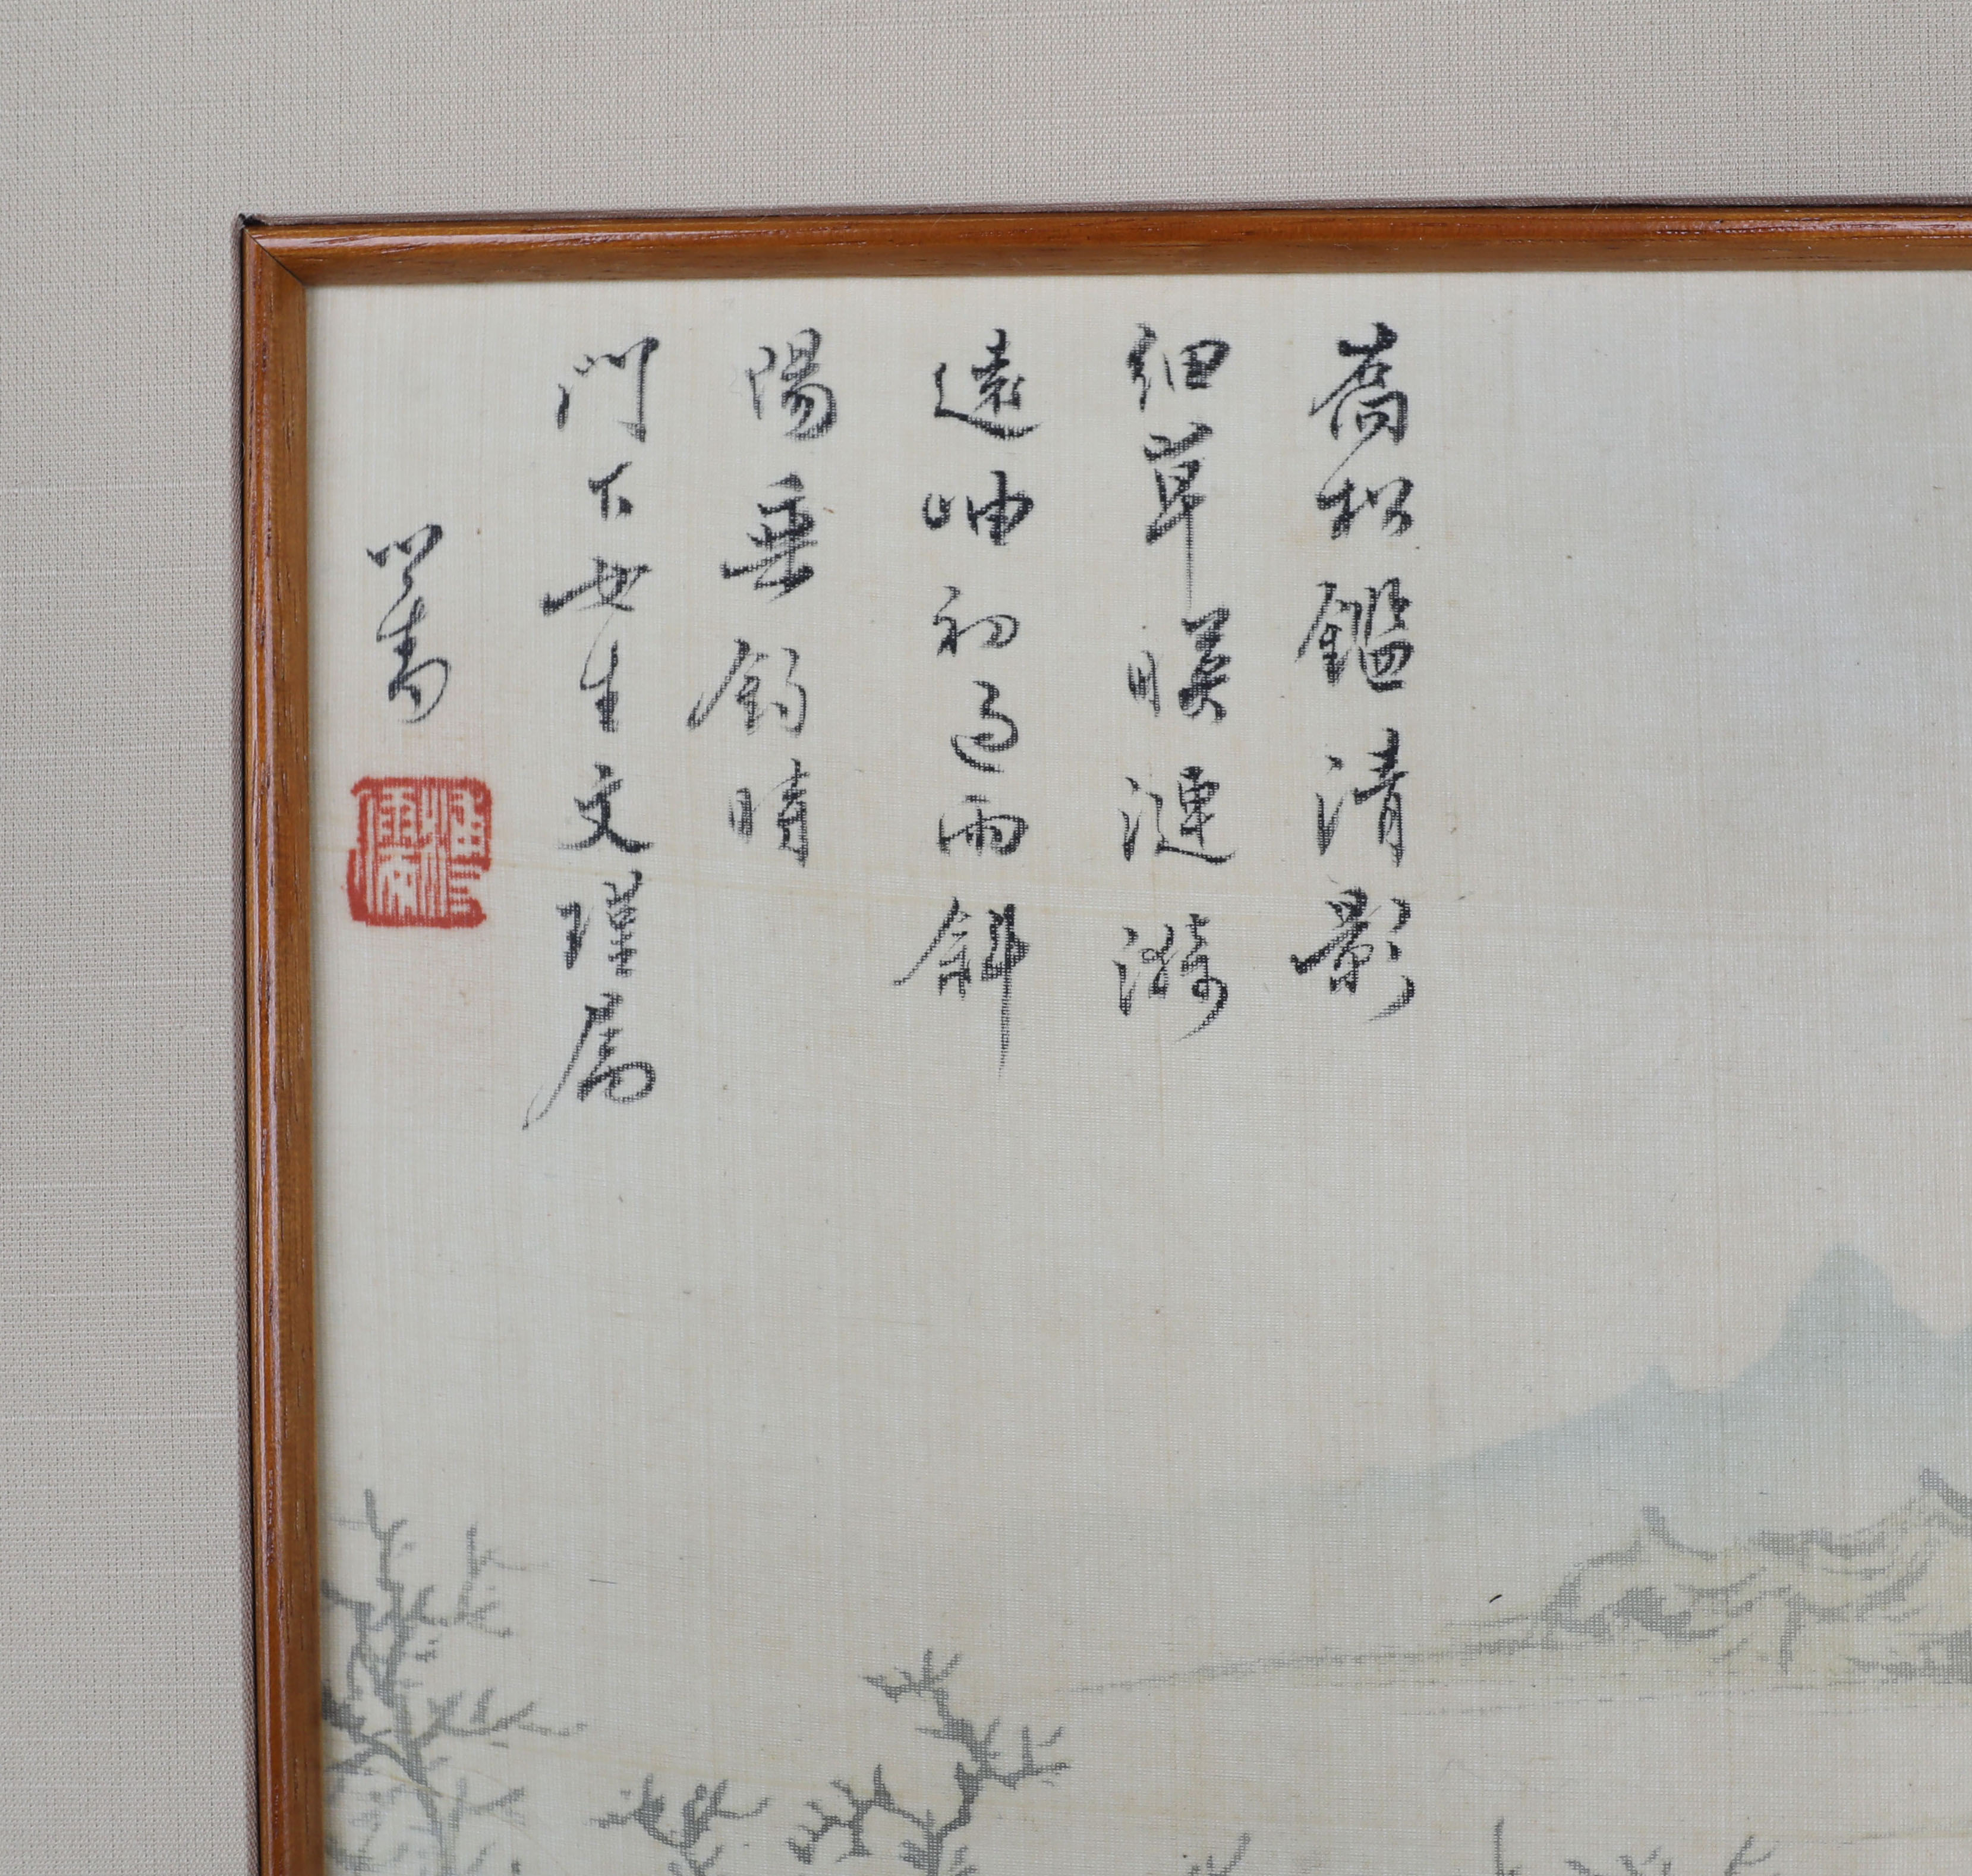 喬松鑑清影
細草暎漣漪
遠岫初過雨斜
陽垂釣時
門下女生文瑾屬
心畬
溥儒